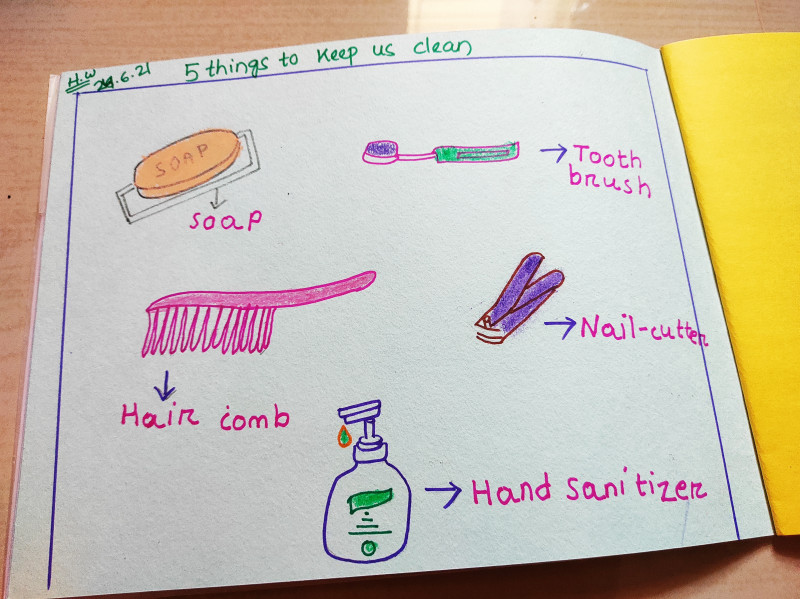 H.W
29.6.21
5 things to keep us clean
SOAP
soap
Tooth
brush
Hair comb
Nail-cutter
Hand sanitizer